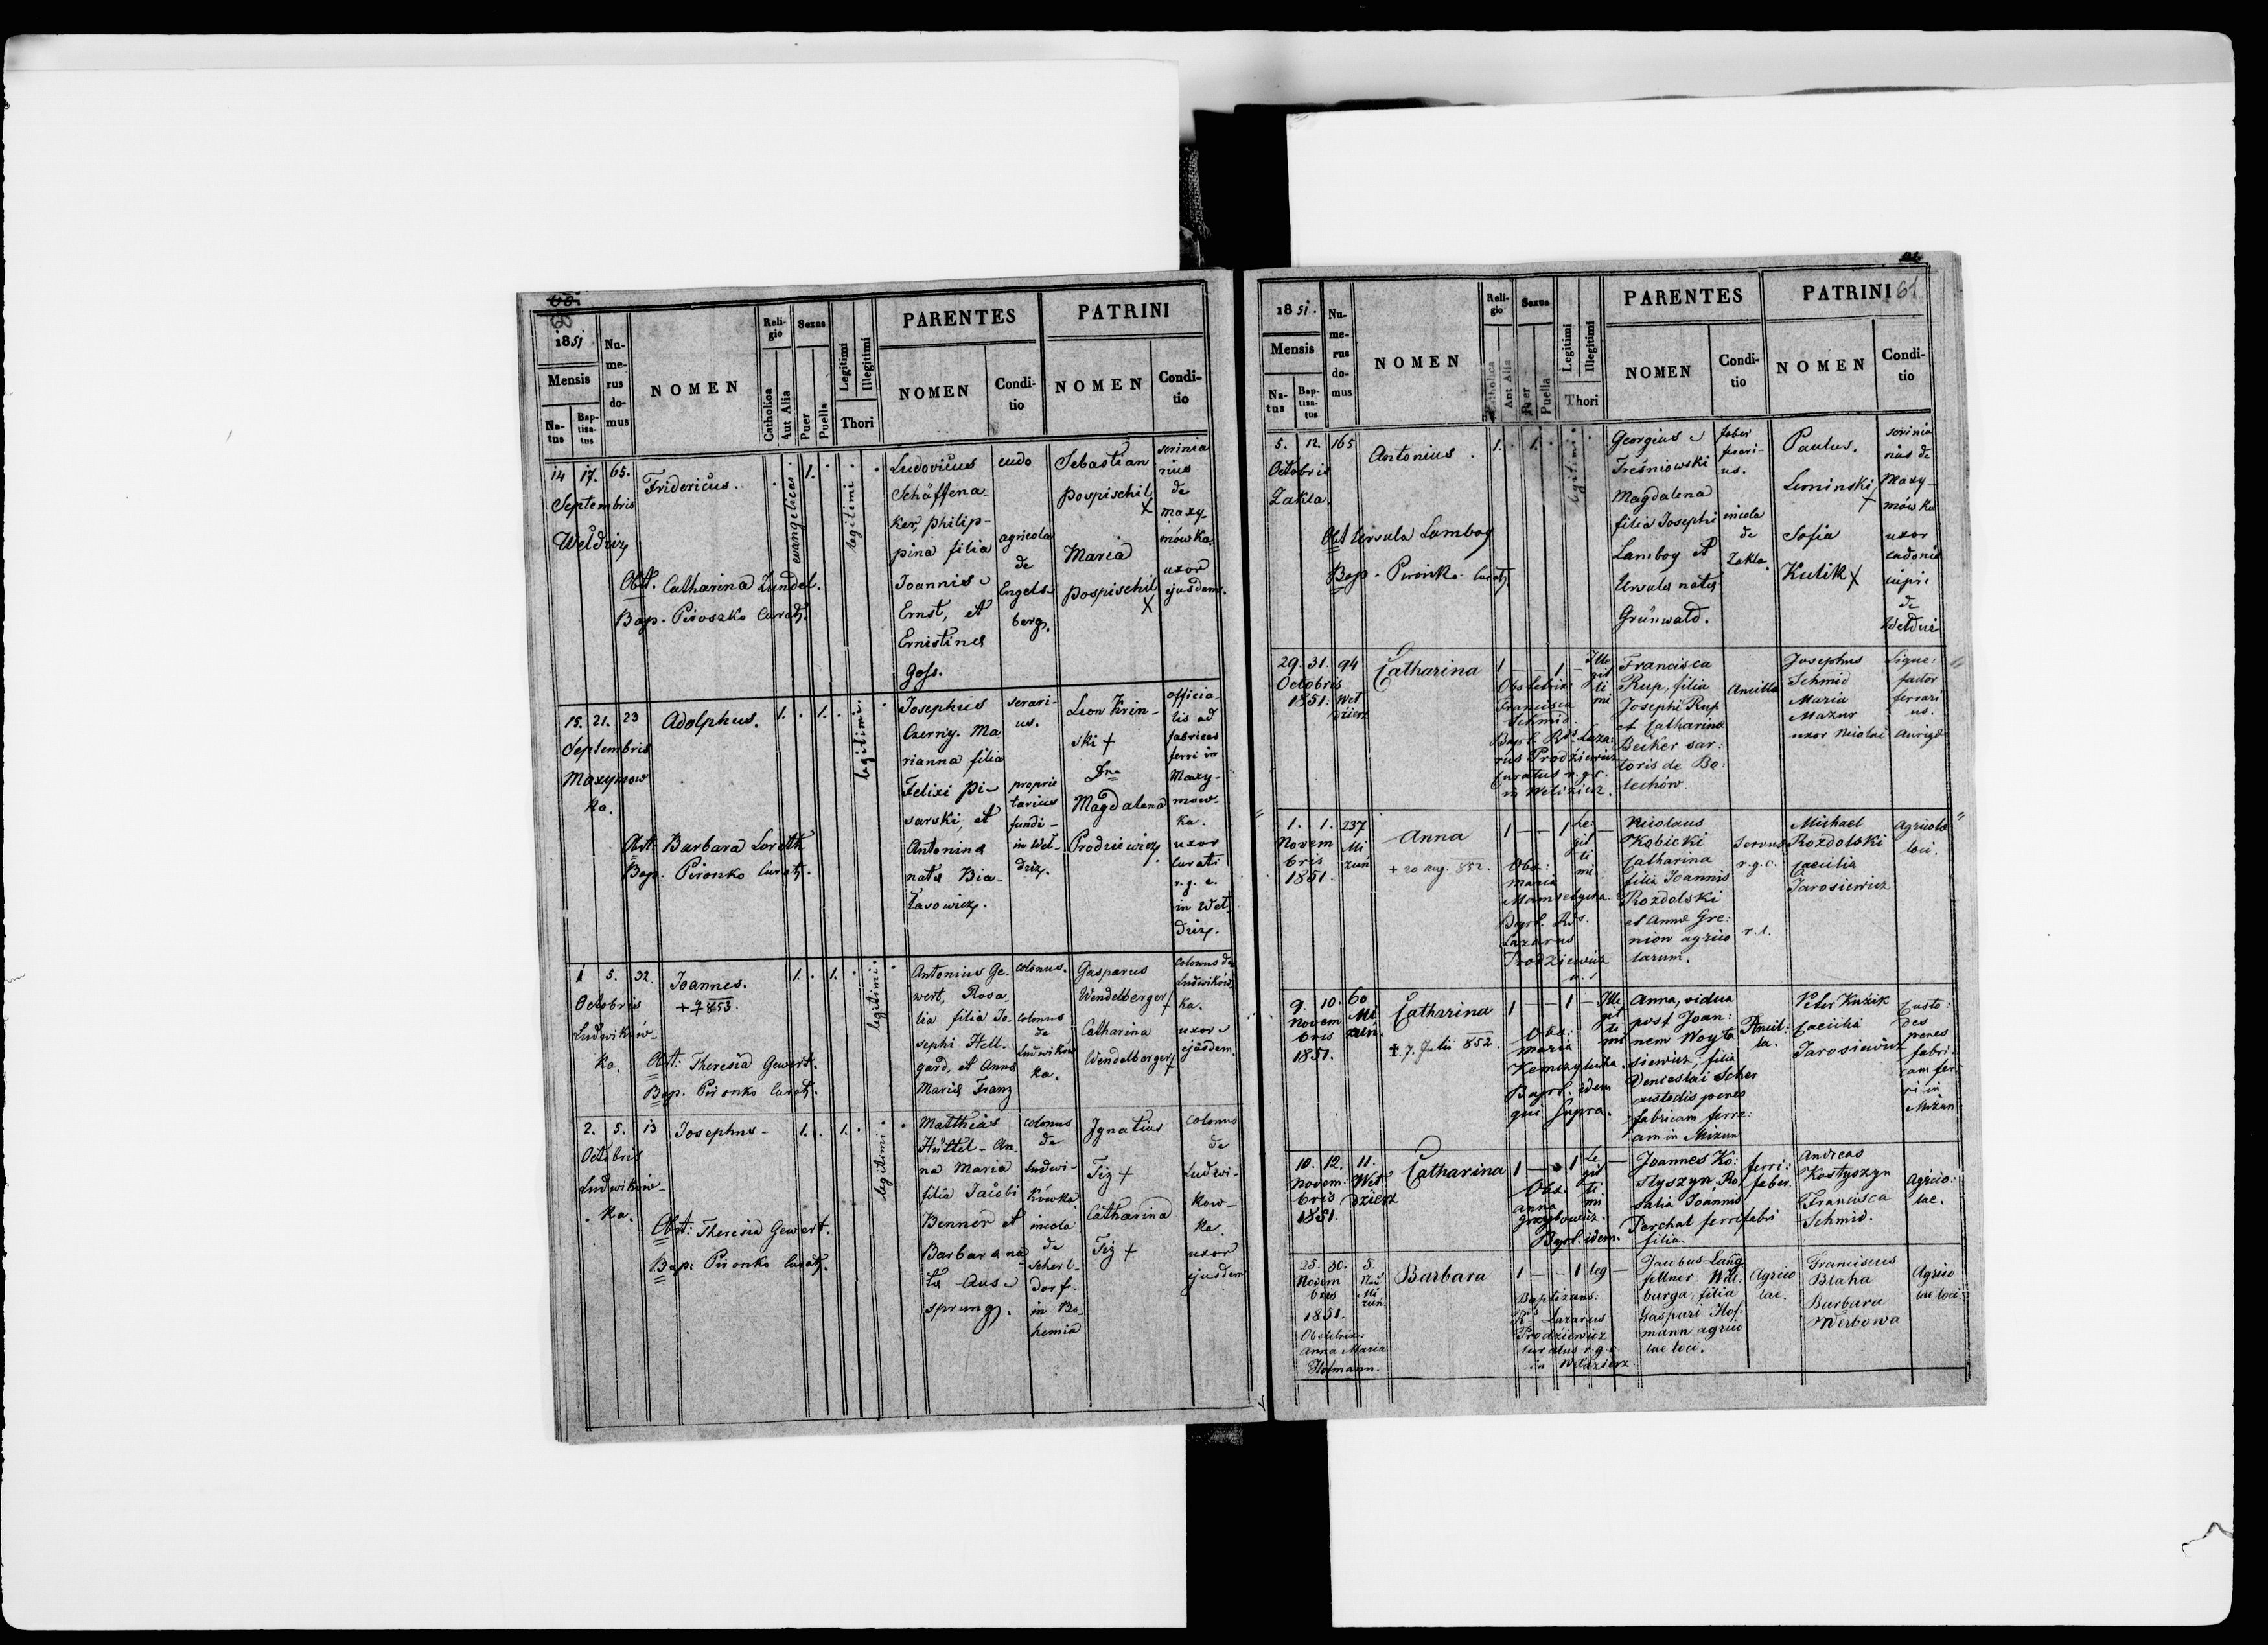 60.
1851
Mensis
Natus
Baptisatus
Numerus domus
NOMEN
Religio
Catholica
Aut Alia
Sexus
Puer
Puella
Legitimi
Illegitimi
Thori
PARENTES
NOMEN
Conditio
PATRINI
NOMEN
Conditio
14 17. 65.
Septembris
Weldziz
Fridericus.
Obst. Catharina Zundel.
Bap. Piroszko Curatg.
evangelicae.
1.
legitimi
Ludovicus
Schäffena-
ker, philip-
pina filia
Joannis
Ernst, et
Ernistines
Goss.
cudo
agricola
de
Engels-
berg.
Sebastian
Pospischil
X
Maria
Pospischil
X
scrinia
rius
de
maxy-
mówka.
uxor
ejusdem.
15. 21. 23
Septembris
Maxymow
ka.
Adolphus.
Obst: Barbara Loreth
Bap. Pironko Curatg.
1. . 1. .
legitimi.
Josephus
Czerny. Ma
rianna filia
Felixi Pi-
sarski, et
Antonina
nata Bia-
ławowicz.
serari-
us.
proprie
tarius
fundi-
in Wel-
dziz.
Leon Krin-
ski +
Dna
Magdalena
Prodziewicz
officia-
lis ad
fabricas
ferri in
Maxy-
mow-
ka.
uxor
curati
r. g. c.
in Wel
dziz.
1 5. 32.
Octobris
Ludwików-
ka.
Joannes.
+ 7/853.
Obst: Theresia Gewert.
Bap. Pironko Curatg.
1. . 1. .
legitimi.
Antonius Ge-
wert, Rosa-
lia filia Jo-
sephi Hell-
gard, et Anna
Maria Franz
colonus.
colonus
de
Ludwików
ka.
Gasparus
Wendelberger +
Catharina
Wendelberger +
colonus de
Ludwików
ka.
uxor
ejusdem.
2. 5. 13
Octobris
Ludwików-
ka.
Josephus
Obst: Theresia Gewert.
Bap: Pironko Curatg.
1. . 1. .
legitimi.
Matthias
Hüttel - An-
na Maria
filia Jacobi
Benner et
Barbara na
ta Aus-
sprung.
colonus
de
Ludwi-
kówka
incola
de
Scherl-
dorf.
in Bo-
hemia
Ignatius
Tiz +
Catharina
Tiz +
colonus
de
Ludwi-
kow-
ka.
uxor
ejusdem
61
1851.
Mensis
Natus
Baptisatus
Numerus domus
NOMEN
Religio
Catholica
Aut Alia
Sexus
Puer
Puella
Legitimi
Illegitimi
Thori
PARENTES
NOMEN
Conditio
PATRINI
NOMEN
Conditio
5. 12. 165
Octobris
Zakla.
Antonius.
Obst Ursula Lamboy
Bap. Pironko Curatg
1. . 1. .
legitimi.
Georgius
Tresniowski
Magdalena
filia Josephi
Lamboy et
Ursula nata
Grünwald.
faber
ferari-
us.
incola
de
Zakla.
Paulus.
Leoninski
+
Sofia
Kulik X
scrinia
rius de
Maxy-
mówka
uxor
cudonis
cupri
de
Weldziz
29. 31. 94
Octobris
1851. Weł
dzierz
Catharina
1 — — 1 —
Ille
git
ti
mi
Obstetrix
Francisca
Schmid.
Bapt. Rds Laza:
rus Prodziewicz
Curatus r. g. c.
in Weldzierz.
Francisca
Rup, filia
Josephi Rup
et Catharina
Becker sar:
toris de Bo:
lechów.
Ancilla
Josephus
Schmid
Maria
Mazur
uxor Nicolai
Lique:
factor
ferrari
us.
Aurigae
1. 1. 237
Novem
bris
1851.
Mi
zuń
Anna
+ 20 aug. 852.
1 — — 1
Le:
git
ti
mi
Obs:
Maria
Bapt. Rds.
Lazarus
Prodziewicz
Nicolaus
Kobicki
Catharina
filia Joannis
Rozdolski
et Anna Gre:
nion agrico
larum.
Servus
r. g. c.
r. l.
Michael
Rozdolski
Caecilia
Jarosiewicz
Agricola
loci.
9. 10. 60
Novem
bris
1851.
Mi
zuń.
Catharina
+ 7. Julii 852.
1 — — 1 —
Ille
git
ti
mi
Obs:
Maria
Bapt. idem
qui supra.
Anna, vidua
post Joan:
nem Woyta
siewicz, filia
Venceslai Scher
custodis penes
fabricam ferre:
am in Mizun
Ancil:
la.
Peter Kuźik
Caecilia
Jarosiewicz
Custo:
des
penes
fabri:
cam fer-
ri in
Mizun
10. 12. 11.
Novem:
bris
1851.
Weł
dzierz
Catharina
1 — — 1
Le
git
ti
mi
Obs.
Anna
Grzybowicz.
Bapt. idem.
Joannes Ko:
styszyn. Ro
salia Joannis
Perchat ferrifabri
filia.
ferri:
faber.
Andreas
Kostyszyn
Francisca
Schmid.
Agrico:
lae.
25. 30. 5.
Novem
bris
1851.
Mi
zuń.
Obstetrix:
Anna Maria
Hofmann.
Barbara
1 — — 1 leg —
Baptizans:
Rds Lazarus
Prodziewicz
Curatus r. g. c
in Weldzierz
Jacobus Lang
fellner. Wal:
burga, filia
Gaspari Hof:
mann agrico
lae loci.
Agrico
lae.
Franciscus
Blaha
Barbara
Werbowa
Agrico
lae loci.